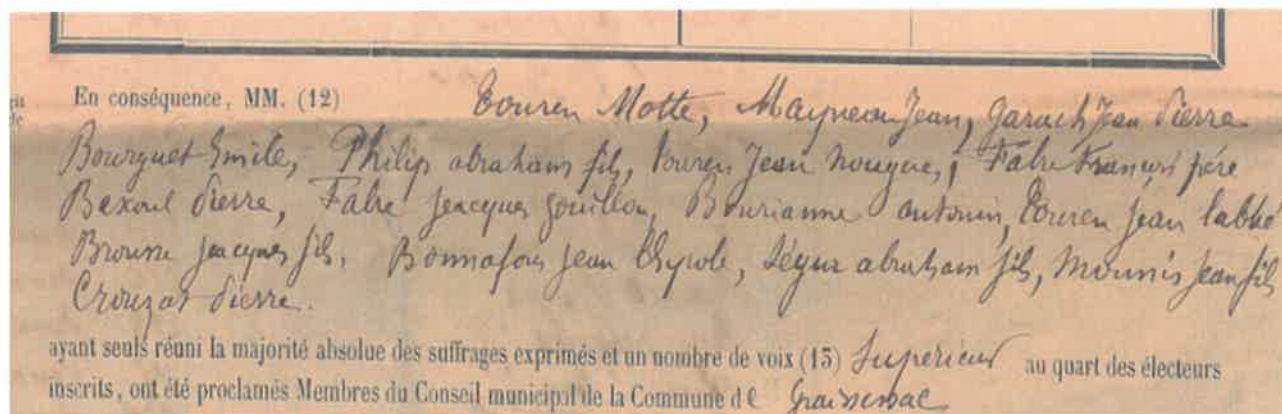 En conséquence, MM. (12) Touren Motte, Mayneau Jean, Garach Jean Pierre
Bourguet Emile, Philip abraham fils, Touren Jean Nougues, Fabre François père
Bexoul Pierre, Fabre Jacques gouillon, Bourianne antonin, Touren Jean labbe
Brousse jacques fils, Bonnafous Jean, Ségur abraham fils, Mounis jean fils
Crouzat Pierre.
ayant seuls réuni la majorité absolue des suffrages exprimés et un nombre de voix (13) Supérieur au quart des électeurs
inscrits, ont été proclamés Membres du Conseil municipal de la Commune de Graissessac